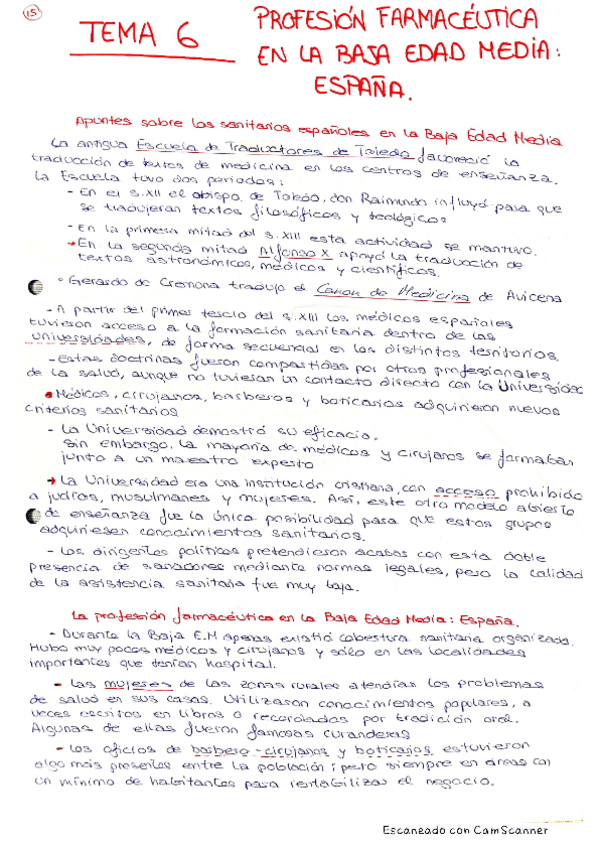 15
TEMA 6
PROFESIÓN FARMACÉUTICA
EN LA BAJA EDAD MEDIA:
ESPAÑA.
Apuntes sobre los sanitarios españoles en la Baja Edad Media
La antigua Escuela de Traductores de Toledo favoreció la
traducción de textos de medicina en los centros de enseñanza.
La Escuela tuvo dos periodos:
- En el s.XII el obispo de Toledo, don Raimundo influyó para que
se tradujeran textos filosóficos y teológicos
- En la primera mitad del s.XIII esta actividad se mantuvo.
→ En la segunda mitad Alfonso X apoyó la traducción de
textos astronómicos, médicos y científicos.
• Gerardo de Cremona tradujo el Canon de Medicina de Avicena
- A partir del primer tercio del s.XIII los médicos españoles
tuvieron acceso a la formación sanitaria dentro de las
universidades, de forma secuencial en los distintos territorios.
- Estas doctrinas fueron compartidas por otros profesionales
de la salud, aunque no tuvieran un contacto directo con la Universidad
• Médicos, cirujanos, barberos y boticarios adquirieron nuevos
criterios sanitarios
- La Universidad demostró su eficacia.
Sin embargo, la mayoría de médicos y cirujanos se formaban
junto a un maestro experto
→ La Universidad era una institución cristiana, con acceso prohibido
a judíos, musulmanes y mujeres. Así, este otro modelo abierto
de enseñanza fue la única posibilidad para que estos grupos
adquiriesen conocimientos sanitarios.
- Los dirigentes políticos pretendieron acabar con esta doble
presencia de sanadores mediante normas legales, pero la calidad
de la asistencia sanitaria fue muy baja.
La profesión farmacéutica en la Baja Edad Media: España.
- Durante la Baja E.M apenas existió cobertura sanitaria organizada.
Hubo muy pocos médicos y cirujanos y sólo en las localidades
importantes que tenían hospital.
- Las mujeres de las zonas rurales atendías los problemas
de salud en sus casas. Utilizaron conocimientos populares, a
veces escritos en libros o recordados por tradición oral.
Algunas de ellas fueron famosas curanderas
- Los oficios de barbero-cirujanos y boticarios, estuvieron
algo más presentes entre la población; pero siempre en áreas con
un mínimo de habitantes para rentabilizar el negocio.
Escaneado con CamScanner